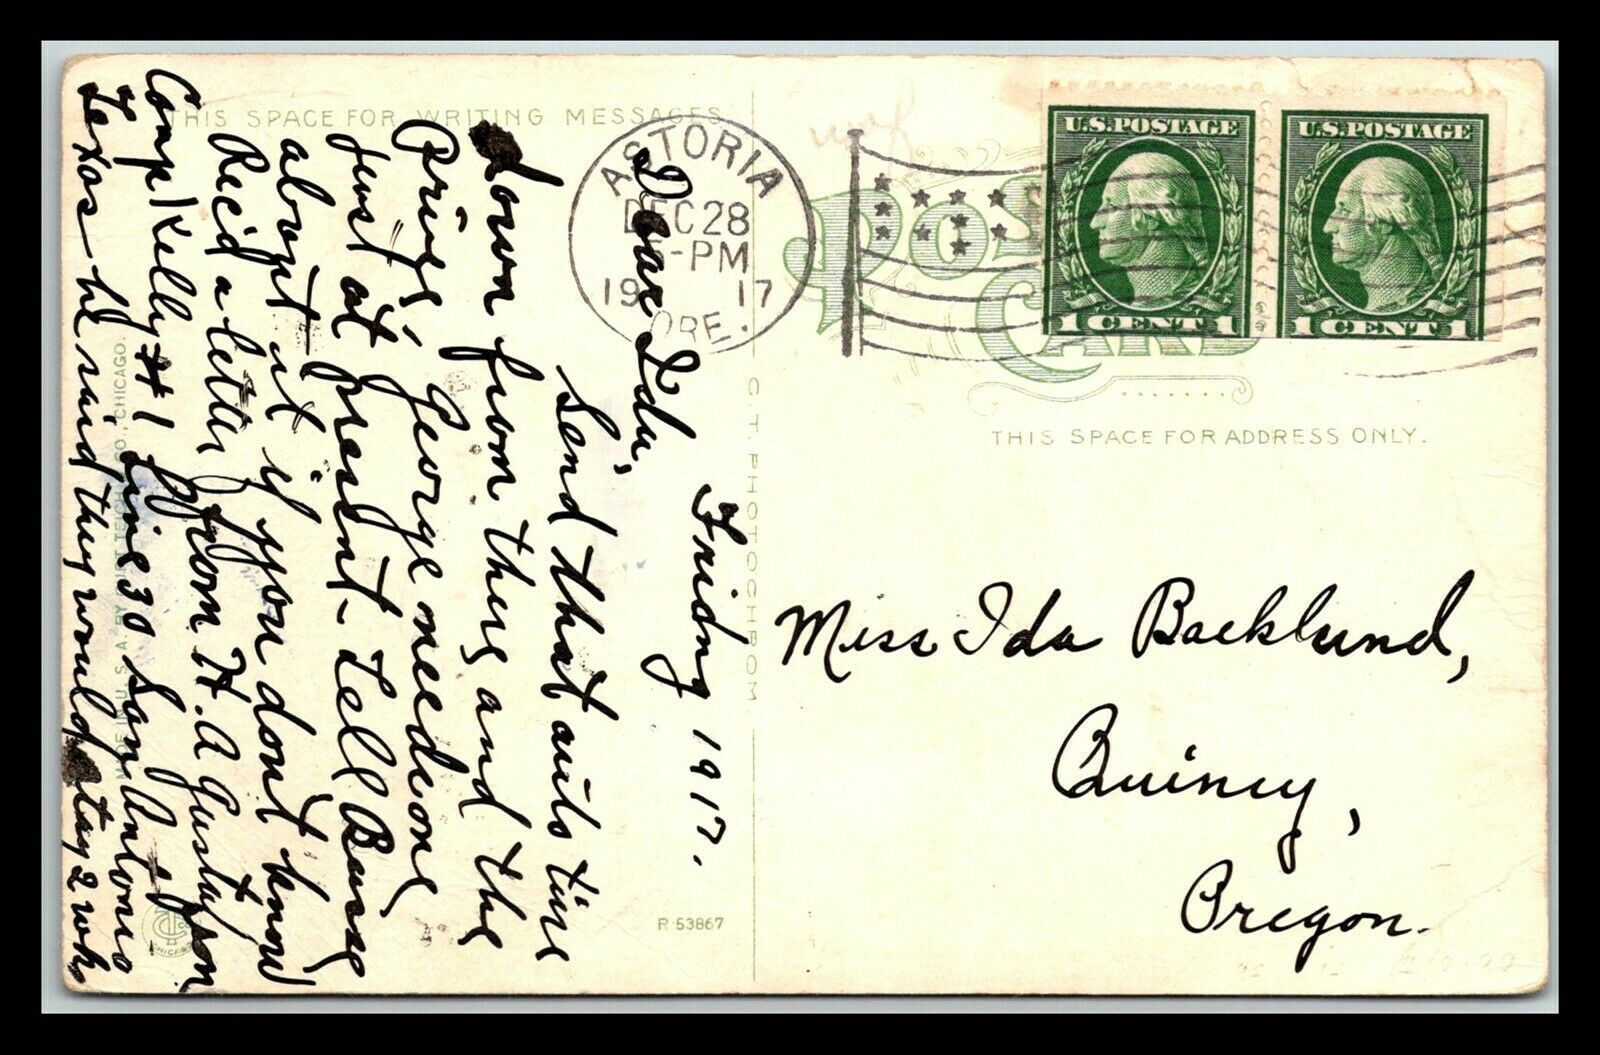 THIS SPACE FOR WRITING MESSAGES.
Friday 1917.
Dear Ida,
Send that auto tire
down from there and the
George needs one
just at present. Tell
about it if you dont know
Rec'd a letter from H. A Gustafson
Comp Kelly #1 Line 30 San Antonio
Texas he said they would stay 2 wks
ASTORIA
DEC 28
-PM
19 17
ORE.
POST CARD
U.S. POSTAGE
1 CENT 1
U.S. POSTAGE
1 CENT 1
THIS SPACE FOR ADDRESS ONLY.
Miss Ida Backlund,
Quincy,
Oregon.
C. T. PHOTOCHROM
R-53867
MADE IN U. S. A. BY CURT TEICH & CO., CHICAGO.